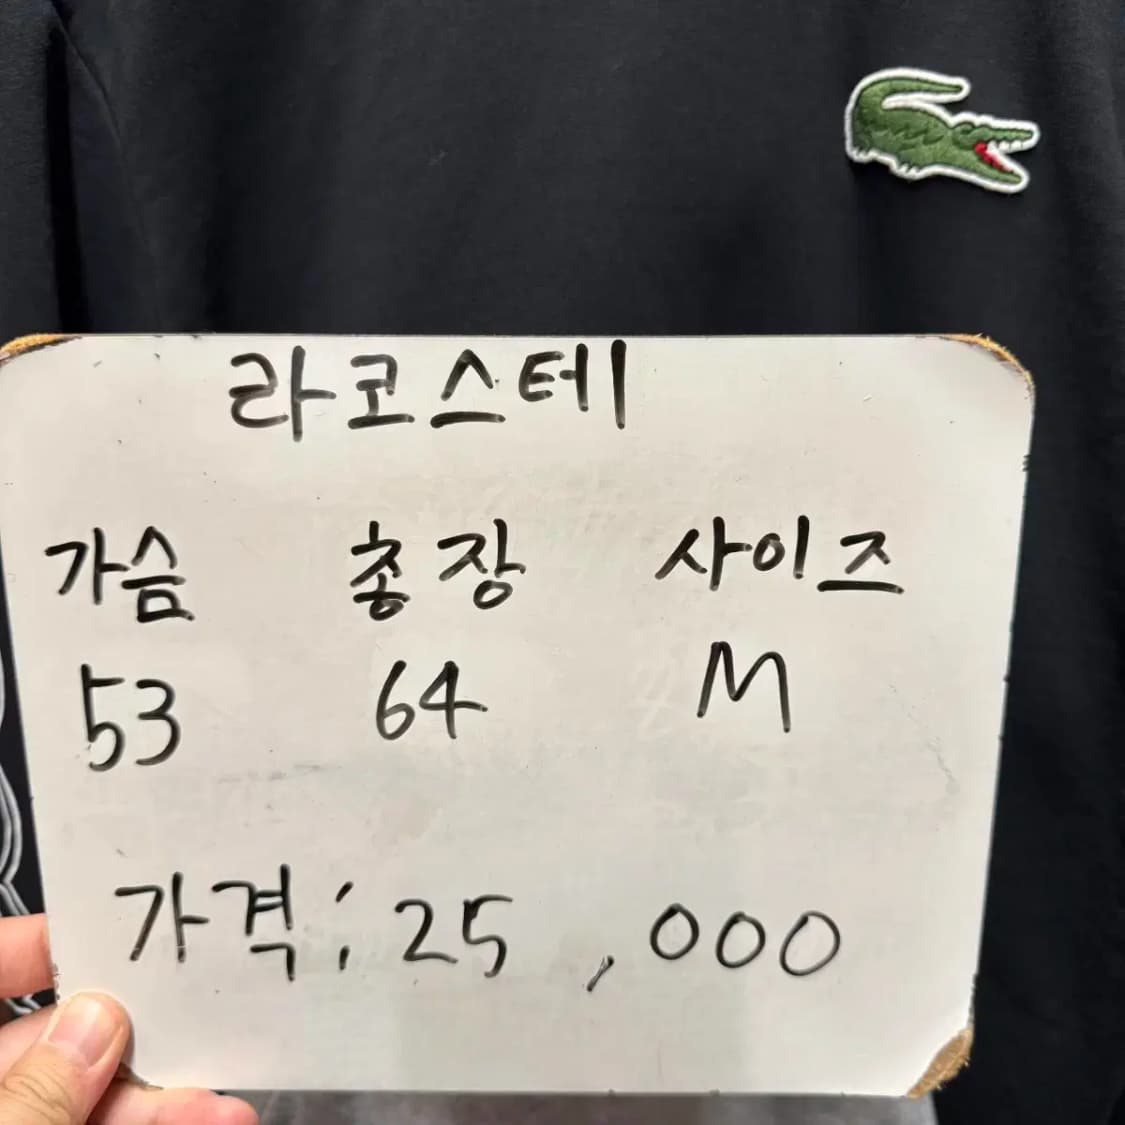 라코스테
가슴 총장 사이즈
53 64 M
가격: 25,000